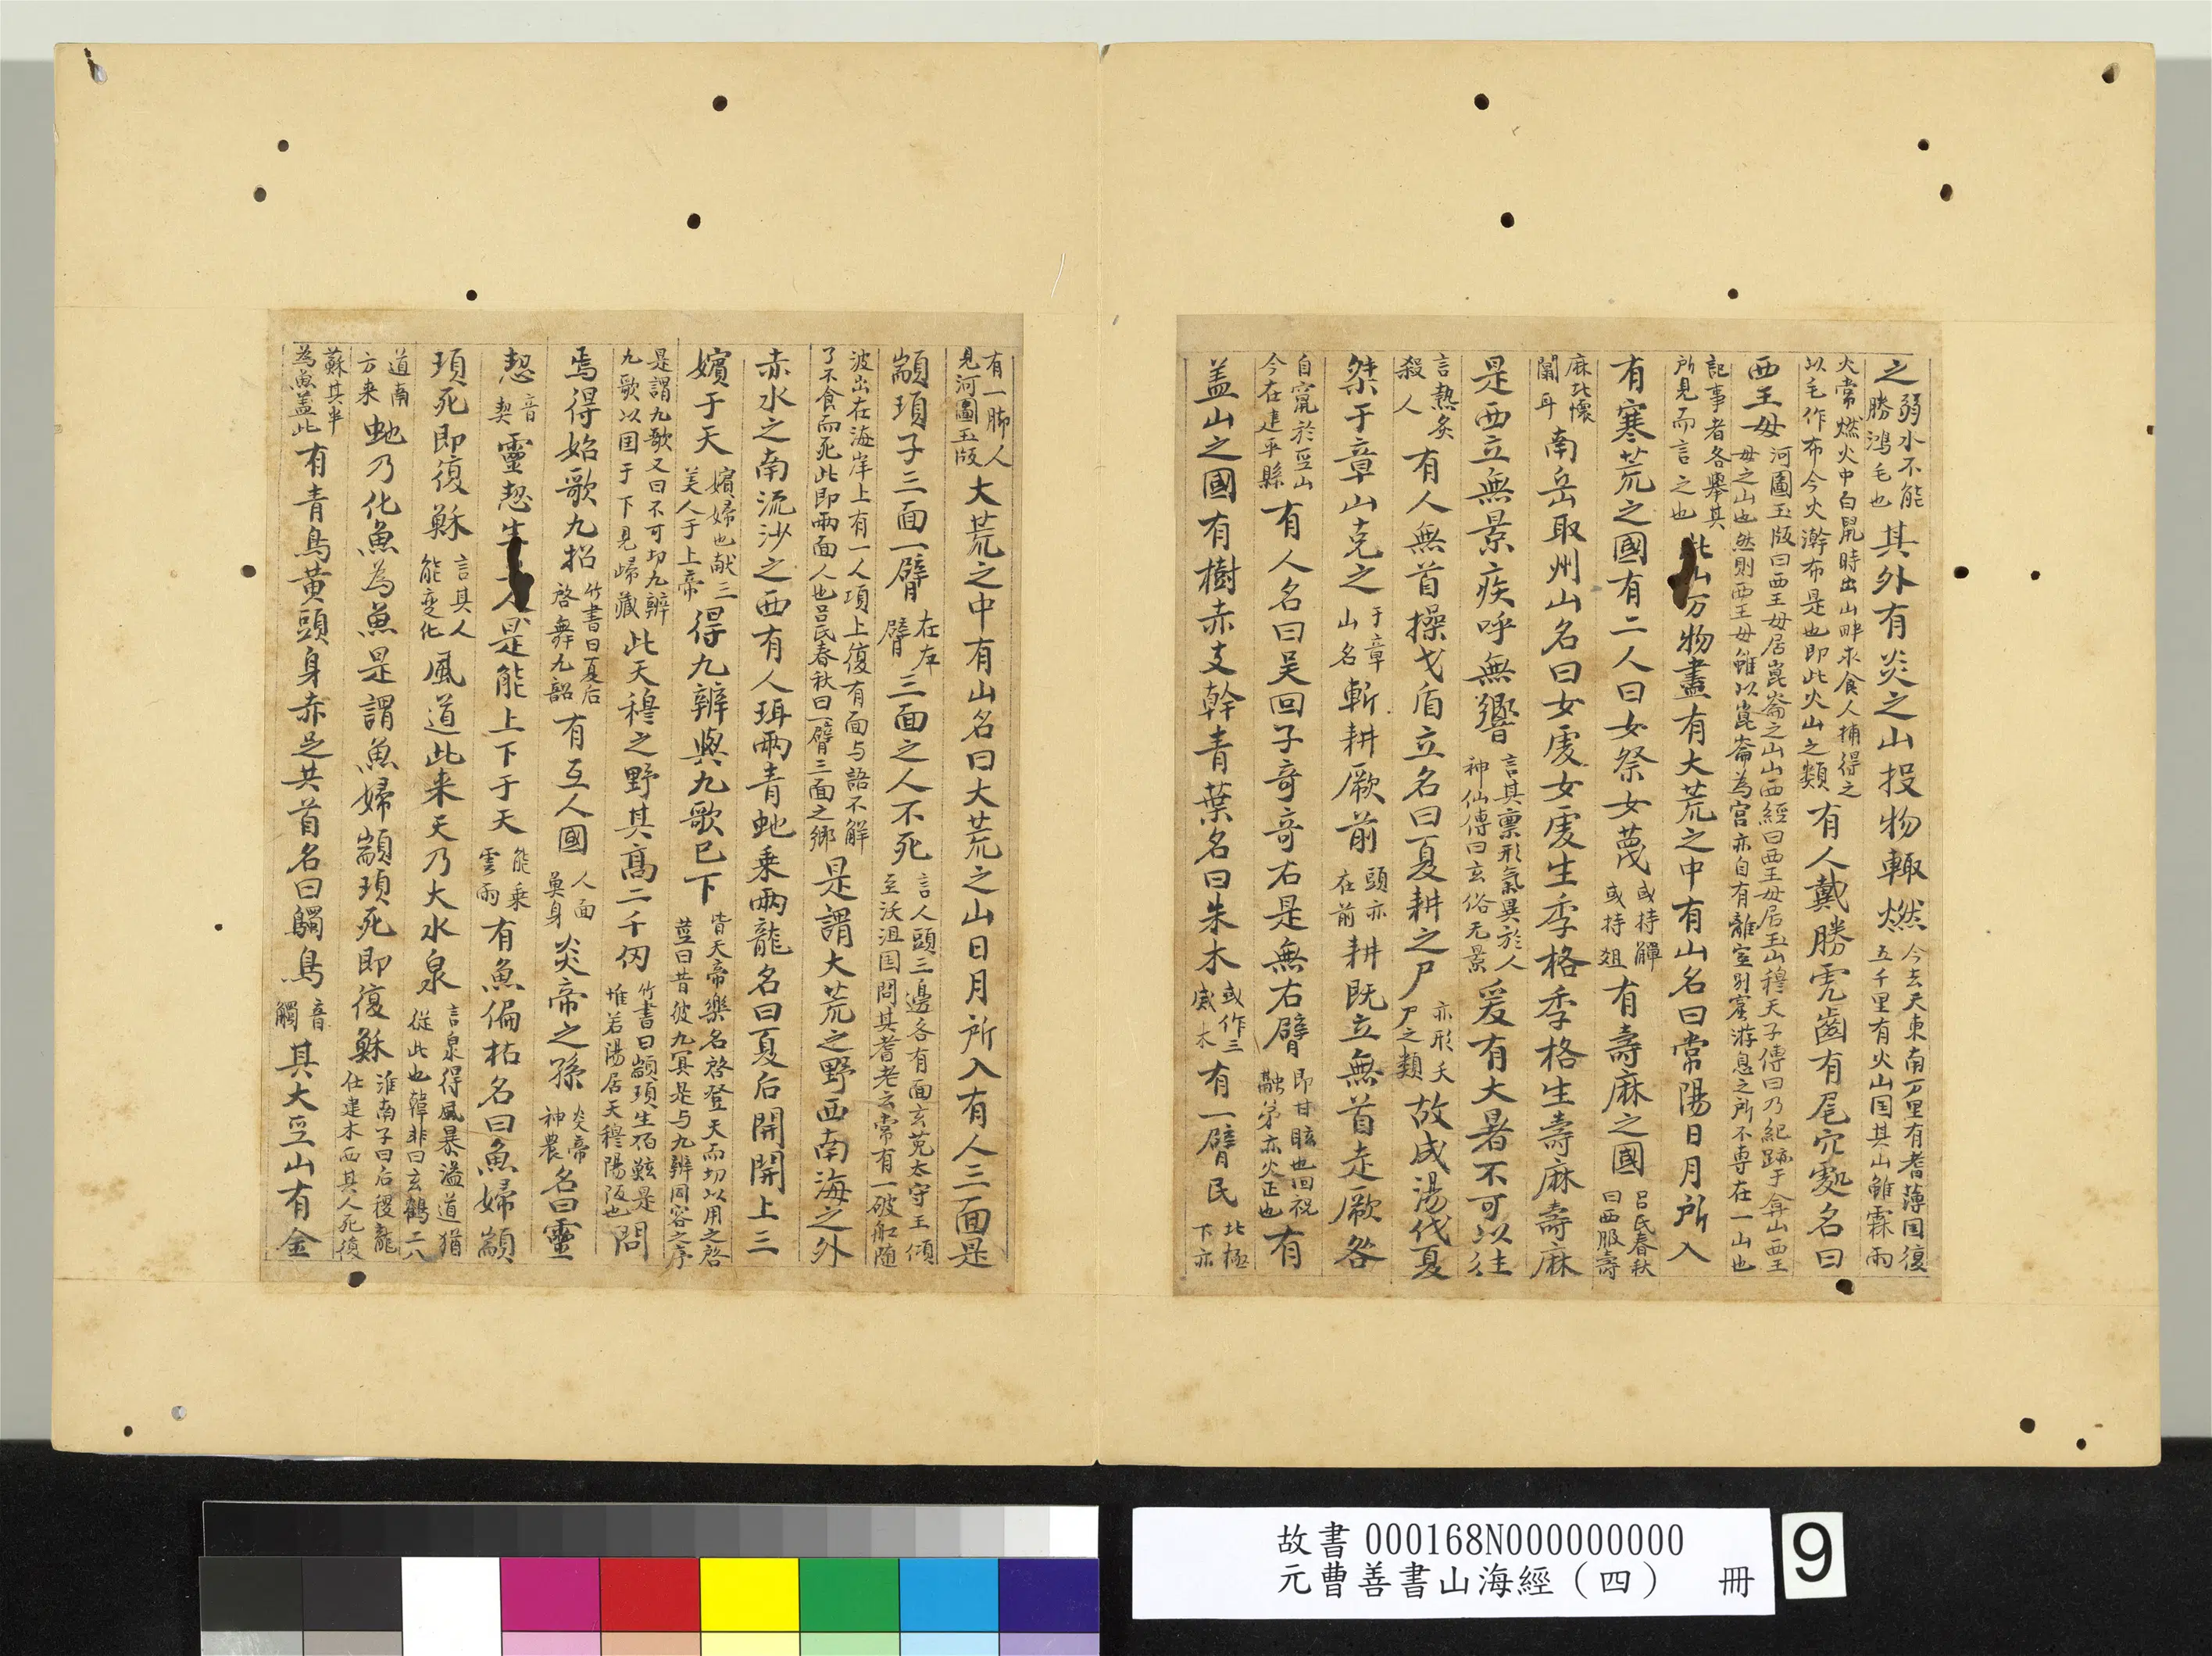 之弱水不能勝鴻毛也其外有炎之山投物輙燃今去天東南万里有耆薄国復五千里有火山国其山雖霖雨
火常燃火中白䑕時出山畔求食人捕得之以毛作布今火澣布是也即此火山之類有人戴勝虎齒有尾穴處名曰
西王母河圖玉版曰西王母居崑崙之山山西經曰西王母居玉山穆天子傳曰乃紀跡于弇山西王母之山也然則西王母雖以崑崙為宮亦自有離室别窟游息之所不専在一山也
記事者各舉其所見而言之也此山万物盡有大荒之中有山名曰常陽日月所入
有寒荒之國有二人曰女祭女薎或持觶或持俎有壽麻之國呂氏春秋曰西服壽
麻北懷闒耳南岳取州山名曰女虔女虔生季格季格生壽麻壽麻
是西立無景疾呼無響言其禀形氣異於人神仙傳曰玄俗无景爰有大暑不可以往
言熱炙殺人有人無首操戈盾立名曰夏耕之尸亦形夭尸之類故成湯伐夏
桀于章山克之于章山名斬耕厥前頭亦在前耕既立無首走厥咎
自竄於巫山今在建平縣有人名曰吴回子竒竒右是無右臂即甘眩也回祝融弟亦火正也有
盖山之國有樹赤支幹青葉名曰朱木或作三威木有一臂民北極下亦
有一脚人見河圖玉版大荒之中有山名曰大荒之山日月所入有人三面是
顓頊子三面一臂在左臂三面之人不死言人頭三邊各有面玄菟太守王傾至沃沮国問其耆老云常有一破船随
波出在海岸上有一人項上復有面与語不解了不食而死此即兩面人也吕氏春秋曰一臂三面之鄉是謂大荒之野西南海之外
赤水之南流沙之西有人珥兩青虵乗兩龍名曰夏后開開上三
嬪于天嬪婦也献三美人于上帝得九辨與九歌已下皆天帝樂名啓登天而切以用之啓莖曰昔彼九冥是与九辨同容之序
是謂九歌又曰不可切九辨九歌以囯于下見歸藏此天穆之野其髙二千仭竹書曰顓頊生伯鯀是惟若陽居天穆陽阪也開
焉得始歌九招竹書曰夏后啓舞九韶有互人國人面奠身炎帝之孫炎帝神農名曰靈
恝音契靈恝生人是能上下于天能乗雲雨有魚偏枯名曰魚婦顓
頊死即復穌言其人能变化風道此来天乃大水泉言泉得風暴溢道猶從此也韓非曰玄鶴二八
道南方来虵乃化魚為魚是謂魚婦顓頊死即復穌淮南子曰后稷龍仕建木西其人死復
蘇其半為魚盖此有青鳥黄頭身赤足共首名曰鸀鳥音觸其大巫山有金
故書000168N000000000
元曹善書山海經（四） 冊
9